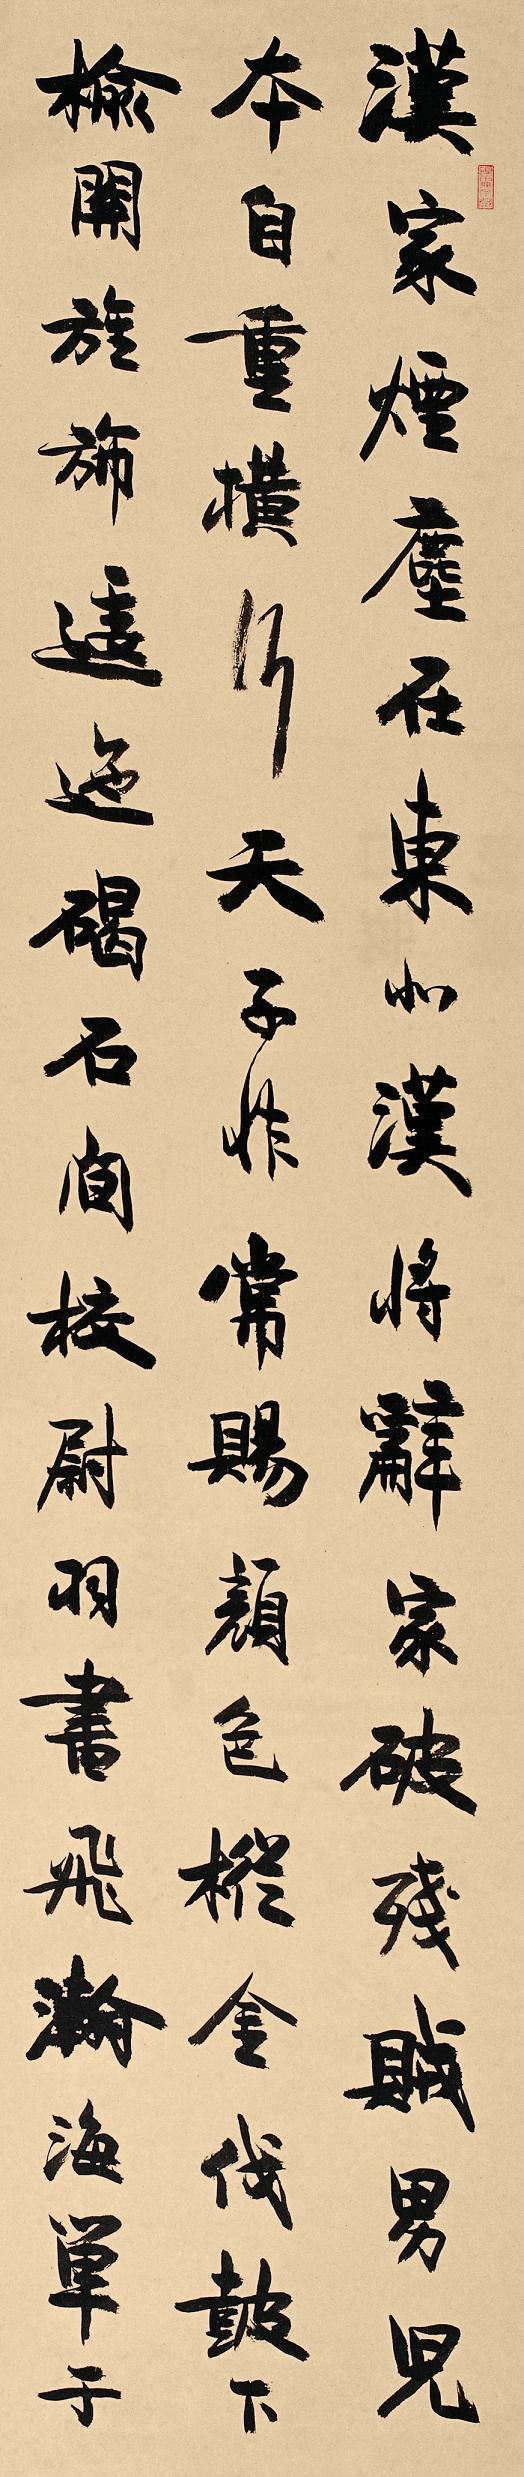 漢家煙塵在東北漢將辭家破殘賊男兒
本自重橫行天子非常賜顏色摐金伐鼓下
榆關旌旆逶迤碣石間校尉羽書飛瀚海單于